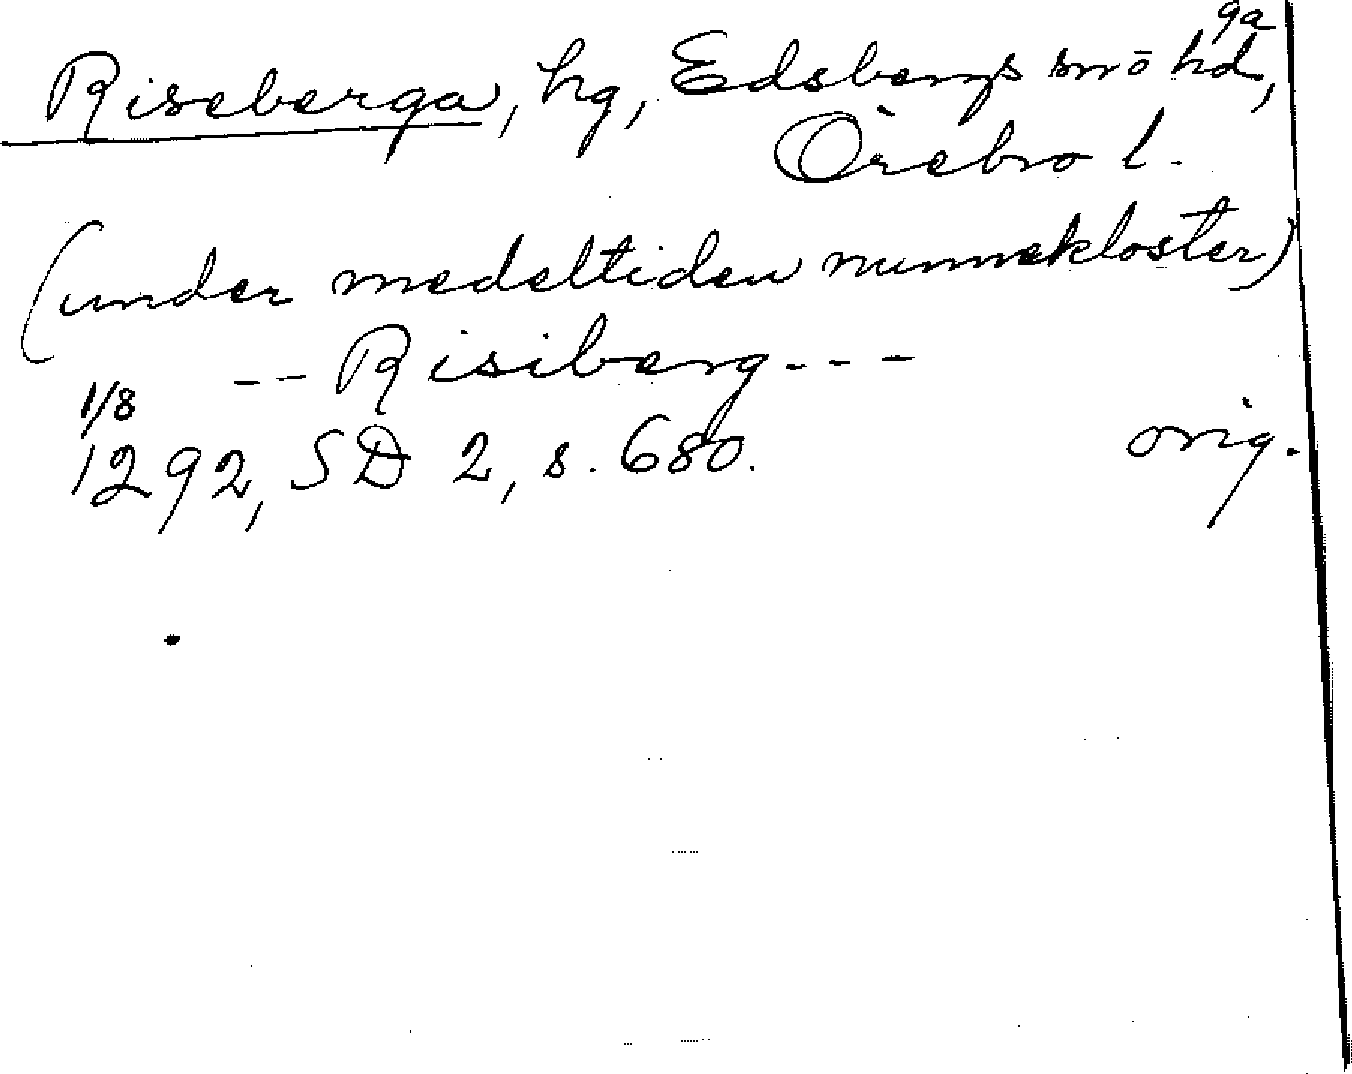 ga
Riseberga, hg, Edsbergs sn o hd,
Örebro l.
(under medeltiden nunnekloster)
-- Risiberg ---
1/8
1292, SD 2, s. 680. orig.